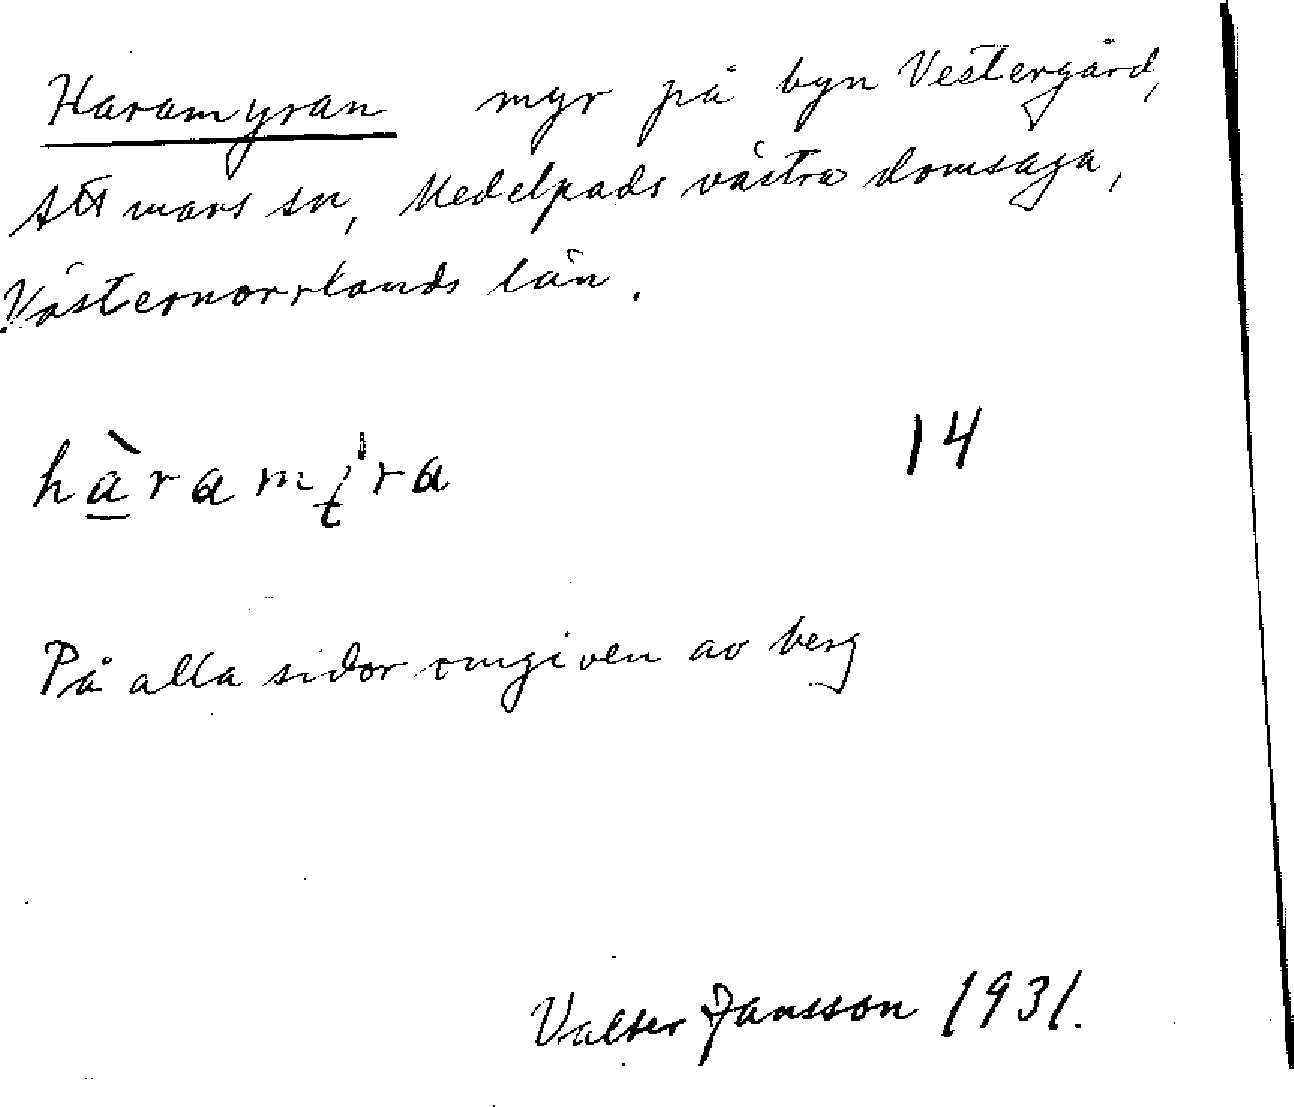 Haramyran myr på byn Vestergård,
Attmars sn, Medelpads västra domsaga,
Västernorrlands län.
14
På alla sidor omgiven av berg
Valter Jansson 1931.